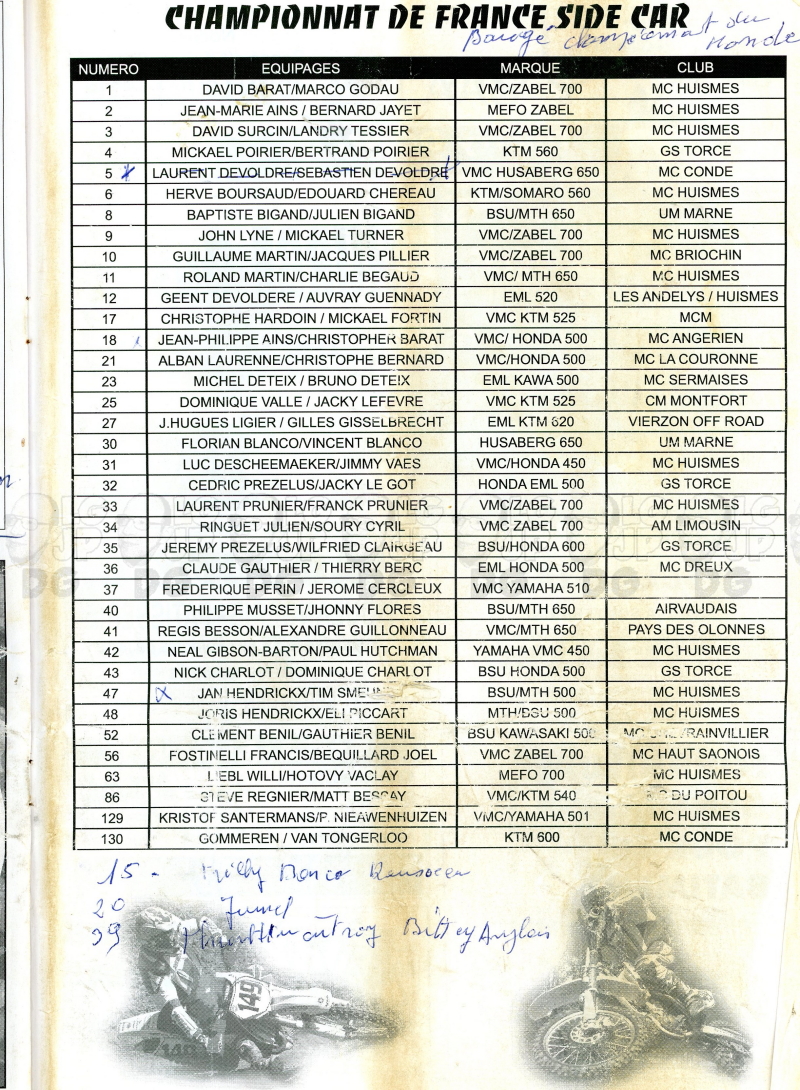 CHAMPIONNAT DE FRANCE SIDE CAR
du
Monde
NUMERO EQUIPAGES MARQUE CLUB
1 DAVID BARAT/MARCO GODAU VMC/ZABEL 700 MC HUISMES
2 JEAN-MARIE AINS / BERNARD JAYET MEFO ZABEL MC HUISMES
3 DAVID SURCIN/LANDRY TESSIER VMC/ZABEL 700 MC HUISMES
4 MICKAEL POIRIER/BERTRAND POIRIER KTM 560 GS TORCE
5 LAURENT DEVOLDRE/SEBASTIEN DEVOLDRE VMC HUSABERG 650 MC CONDE
6 HERVE BOURSAUD/EDOUARD CHEREAU KTM/SOMARO 560 MC HUISMES
8 BAPTISTE BIGAND/JULIEN BIGAND BSU/MTH 650 UM MARNE
9 JOHN LYNE / MICKAEL TURNER VMC/ZABEL 700 MC HUISMES
10 GUILLAUME MARTIN/JACQUES PILLIER VMC/ZABEL 700 MC BRIOCHIN
11 ROLAND MARTIN/CHARLIE BEGAUD VMC/ MTH 650 MC HUISMES
12 GEENT DEVOLDERE / AUVRAY GUENNADY EML 520 LES ANDELYS / HUISMES
17 CHRISTOPHE HARDOIN / MICKAEL FORTIN VMC KTM 525 MCM
18 JEAN-PHILIPPE AINS/CHRISTOPHER BARAT VMC/ HONDA 500 MC ANGERIEN
21 ALBAN LAURENNE/CHRISTOPHE BERNARD VMC/HONDA 500 MC LA COURONNE
23 MICHEL DETEIX / BRUNO DETEIX EML KAWA 500 MC SERMAISES
25 DOMINIQUE VALLE / JACKY LEFEVRE VMC KTM 525 CM MONTFORT
27 J.HUGUES LIGIER / GILLES GISSELBRECHT EML KTM 620 VIERZON OFF ROAD
30 FLORIAN BLANCO/VINCENT BLANCO HUSABERG 650 UM MARNE
31 LUC DESCHEEMAEKER/JIMMY VAES VMC/HONDA 450 MC HUISMES
32 CEDRIC PREZELUS/JACKY LE GOT HONDA EML 500 GS TORCE
33 LAURENT PRUNIER/FRANCK PRUNIER VMC/ZABEL 700 MC HUISMES
34 RINGUET JULIEN/SOURY CYRIL VMC ZABEL 700 AM LIMOUSIN
35 JEREMY PREZELUS/WILFRIED CLAIRGEAU BSU/HONDA 600 GS TORCE
36 CLAUDE GAUTHIER / THIERRY BERC EML HONDA 500 MC DREUX
37 FREDERIQUE PERIN / JEROME CERCLEUX VMC YAMAHA 510
40 PHILIPPE MUSSET/JHONNY FLORES BSU/MTH 650 AIRVAUDAIS
41 REGIS BESSON/ALEXANDRE GUILLONNEAU VMC/MTH 650 PAYS DES OLONNES
42 NEAL GIBSON-BARTON/PAUL HUTCHMAN YAMAHA VMC 450 MC HUISMES
43 NICK CHARLOT / DOMINIQUE CHARLOT BSU HONDA 500 GS TORCE
47 JAN HENDRICKX/TIM BSU/MTH 500 MC HUISMES
48 JORIS HENDRICKX/ELI PICCART MTH/BSU 500 MC HUISMES
52 CLEMENT BENIL/GAUTHIER BENIL BSU KAWASAKI 500 MC
56 FOSTINELLI FRANCIS/BEQUILLARD JOEL VMC ZABEL 700 MC HAUT SAONOIS
63 LIEBL WILLI/HOTOVY VACLAY MEFO 700 MC HUISMES
86 STEVE REGNIER/MATT BESSAY VMC/KTM 540 MC DU POITOU
129 KRISTOF SANTERMANS/P. NIEAWENHUIZEN VMC/YAMAHA 501 MC HUISMES
130 GOMMEREN / VAN TONGERLOO KTM 600 MC CONDE
15 -
20
99 Anglais
149